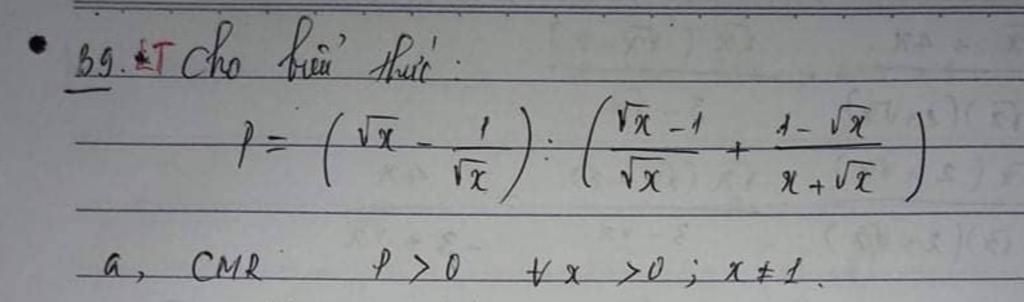 B9. T Cho biểu thức :
P = (√x - 1/√x) : ((√x - 1)/√x + (1 - √x)/(x + √x))
a, CMR P > 0 ∀ x > 0 ; x ≠ 1.